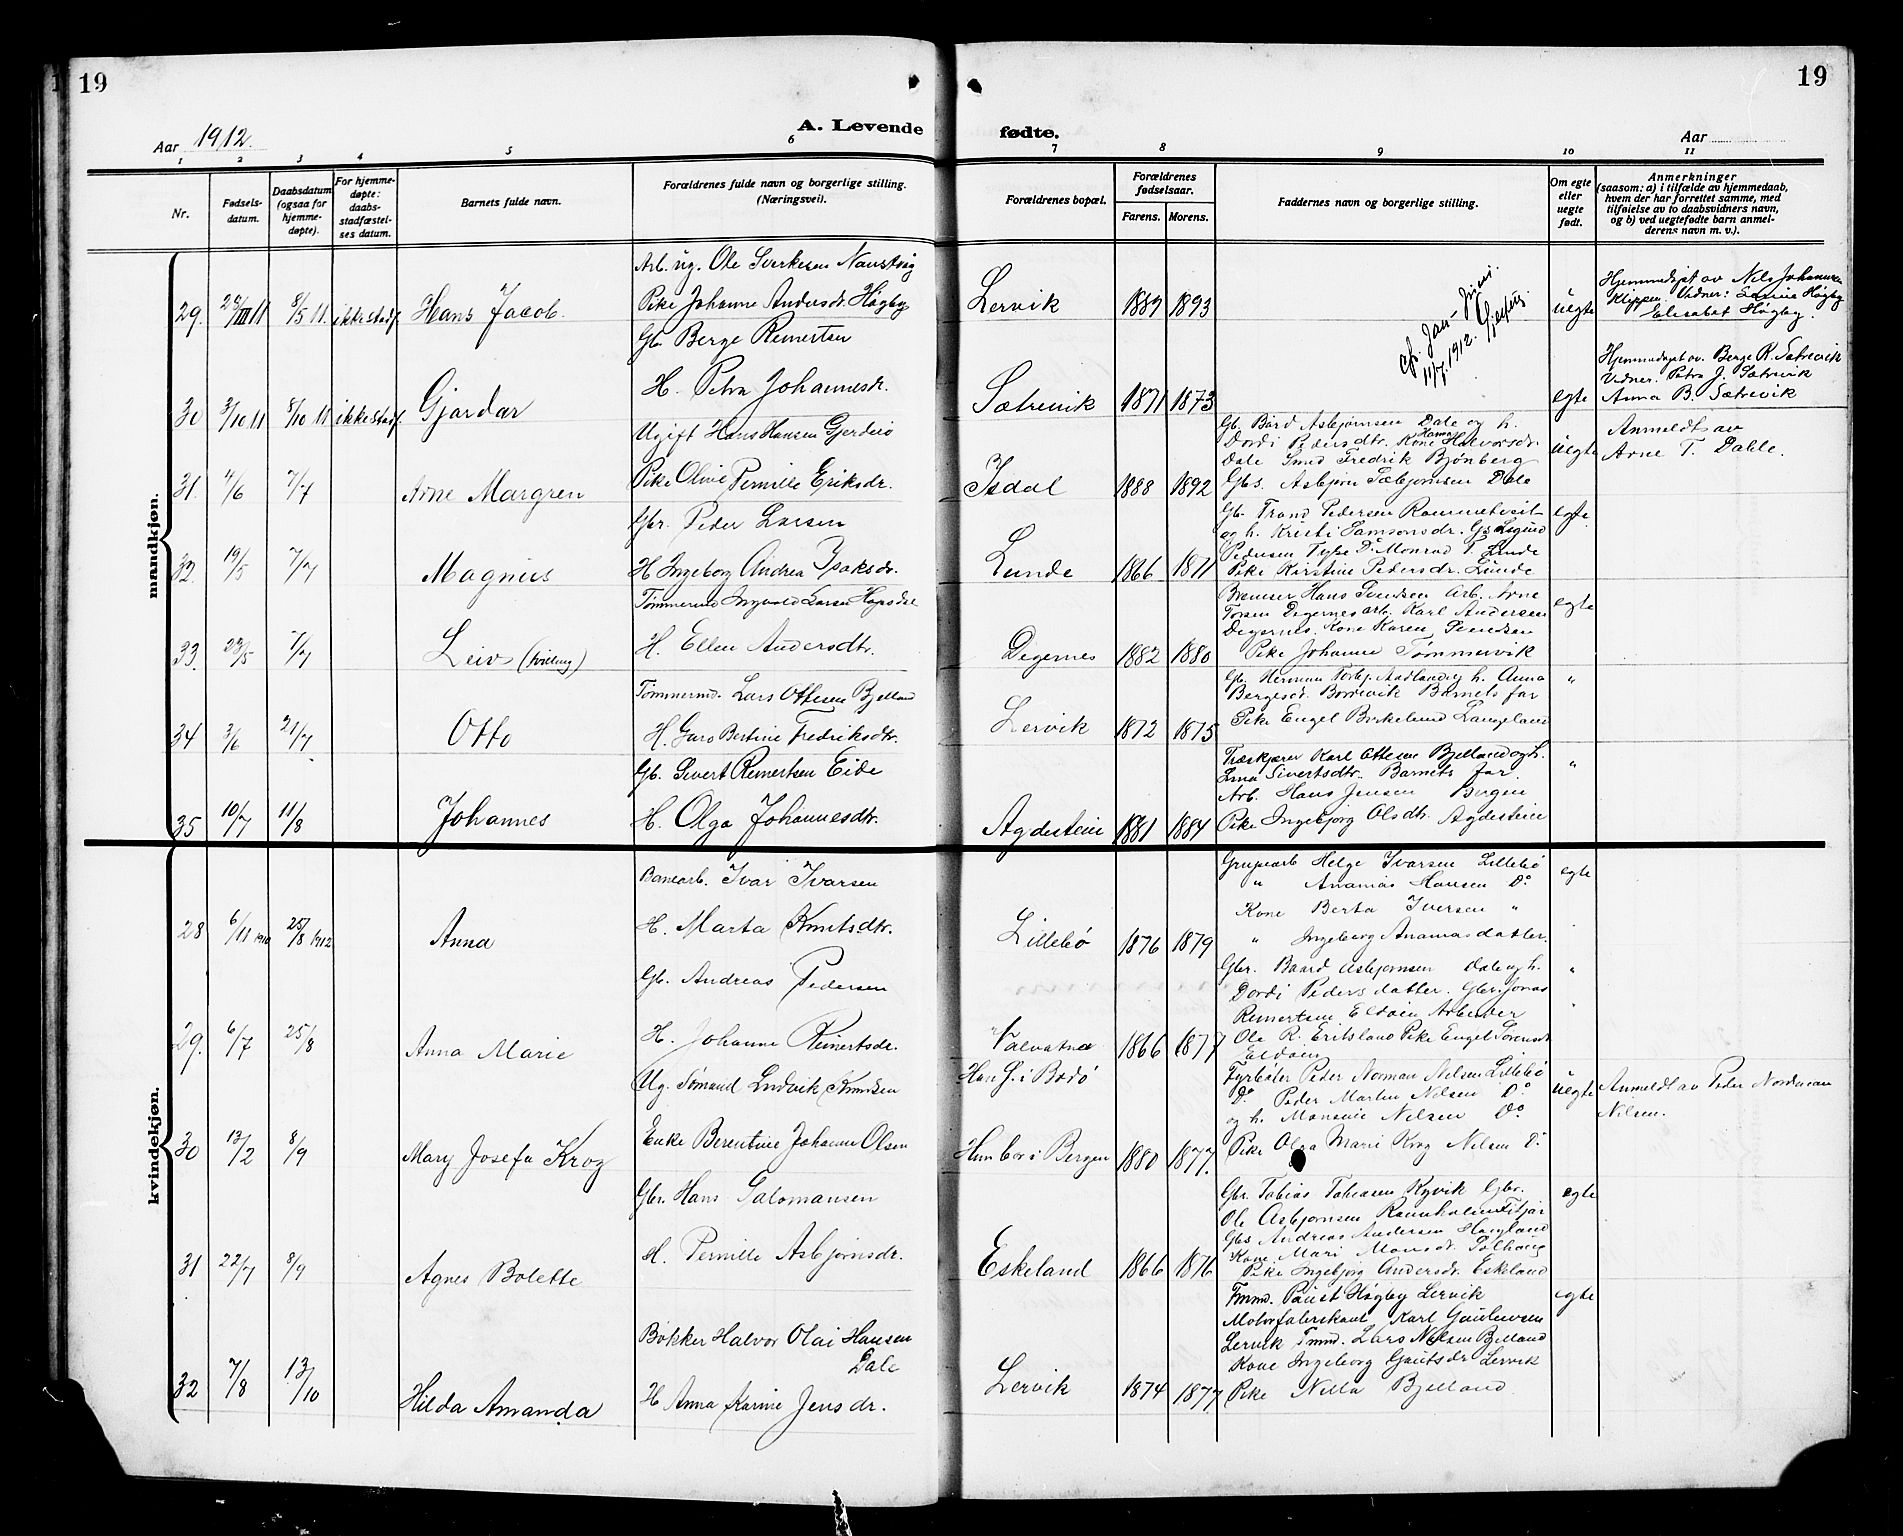 19
19
Aar 1912.
A. Levende fødte.
Aar
1 2 3 4 5 6 7 8 9 10 11
Nr.
Fødsels-
datum.
Daabsdatum
(ogsaa for
hjemme-
døpte).
For hjemme-
døpte:
daabs-
stadfæstel-
ses datum.
Barnets fulde navn.
Forældrenes fulde navn og borgerlige stilling.
(Næringsvei).
Forældrenes bopæl.
Forældrenes
fødselsaar.
Farens. Morens.
Faddernes navn og borgerlige stilling.
Om egte
eller
uegte
født.
Anmerkninger
(saasom: a) i tilfælde av hjemmedaab,
hvem der har forrettet samme, med
tilføielse av to daabsvidners navn,
og b) ved uegtefødte barn anmel-
derens navn m. v.).
mandkjøn.
29. 28/III 11 8/5 11. ikke stadf. Hans Jacob.
Arb. ug. Ole Sverkesen Naustvåg
Pike Johanne Andersdr. Høgby
Lervik 1889 1893
11/7 1912.
uegte
Hjemmedøpt av Nils Johannesen
Klippen. Vidner: Høgby
Elisabet Høgby.
30 3/10 11 8/10 11 ikke stadf. Gjardar
Gb. Berge Reinertsen
H. Petra Johannesdr.
Sætrevik 1871 1873
egte
Hjemmedøpt av. Berge R. Sætrevik
Vidner. Petra J. Sætrevik
Anna B. Sætrevik
31. 4/6 7/7 Arne Margren
Ugift Hans Hansen
Pike Olive Pernille Eriksdr.
Isdal 1888 1892
Gb. Bård Asbjørnsen Dale og h.
Dordi Pedersdtr. Kone Halvorsdr.
Dale Smed Fredrik Bjønberg
Gbs. Asbjørn Dale
uegte
Anmeldt av
Arne T. Dahle.
32. 19/5 7/7 Magnus
Gbr. Peder Larsen
H Ingeborg Andrea Isaksdr.
Lunde 1866 1871
Gb. Trond Pedersen Rommetveit
og h. Kristi Samsonsdr. Gs Sigurd
Pedersen Tyse Do Monrad T. Lunde
Pike Kirstine Pedersdr. Lunde
egte
33. 23/5 7/7 Leiv (tvilling)
Tømmermd Ingvald Larsen Hopsdal
H. Ellen Andersdtr.
Degernes 1882 1880
Bremser Hans Arb. Arne
Degernes arb. Karl Andersen
Degernes. Kone Karen
Pike Johanne Tømmervik
egte
34 3/6 21/7 Otto
Tømmermd. Lars Ottesen Bjelland
H. Guro Bertine Fredriksdtr.
Lervik 1872 1875
Gb. Herman og h. Anna
Bergesd. Barnets far
Pike Engel Birkelund Langeland
"
35 10/7 11/8 Johannes
Gb. Sivert Reinertsen Eide
H. Olga Johannesdtr.
Agdestein 1881 1884
Træskjærer Karl Ottesen Bjelland og h.
Lina Sivertsdtr. Barnets far.
Arb. Hans Jensen Bergen
Pike Ingebjørg Olsdtr. Agdestein
"
kvindekjøn.
28 6/11 1910 25/8 1912 Anna
Banearb. Ivar Ivarsen
H. Marta Knutsdtr.
Lillebø 1876 1879
Grupearb Helge Ivarsen Lillebø
" Ananias Hansen Do
Kone Berta Iversen "
" Ingeborg Ananiasdatter.
egte
29. 6/7 25/8 Anna Marie
Gb. Andreas Pedersen
H. Johanne Reinertsdr.
Valvatna 1866 1877
Gbr. Baard Asbjørnsen Dale og h.
Dordi Pedersdatter. Gbr. Jonas
Reinertsen Eldøien Arbeider
Ole R. Eritsland Pike Engel Sørensdr
Eldøien
"
30 13/2 8/9 Mary Josefa Krog
Ug. Sømand Ludvik Knudsen
Enke Berentine Johanne Olsen
Han f. i Bodø
Hun bor i Bergen 1880 1877.
Fyrbøter Peder Norman Nelsen Lillebø
Do Peder Martin Nelsen Do
og h. Monsine Nelsen Do
Pike Olga Marie Krog Nelsen Do
uegte
Anmeldt av Peder Norman
Nilsen.
31 22/7 8/9 Agnes Bolette
Gbr. Hans Salomonsen
H. Pernille Asbjørnsdr.
Eskeland 1866 1876
Gbr. Tobias Tobiasen Kyvik Gbr.
Ole Asbjørnsen Fitjar
Gbs Andreas Andersen Haugland
Kone Mari Monsdr.
Pike Ingebjørg Andersdr. Eskeland
egte
32 7/8 13/10 Hilda Amanda
Bøkker Halvor Olai Hansen
Dale
H Anna Karine Jensdr.
Lervik 1874 1877
Tmmd. Høgby Lervik
Karl
Lervik Tmmd. Lars Nilsen Bjelland
Kone Ingeborg Gautsdr Lervik
Pike Nilla Bjelland.
egte